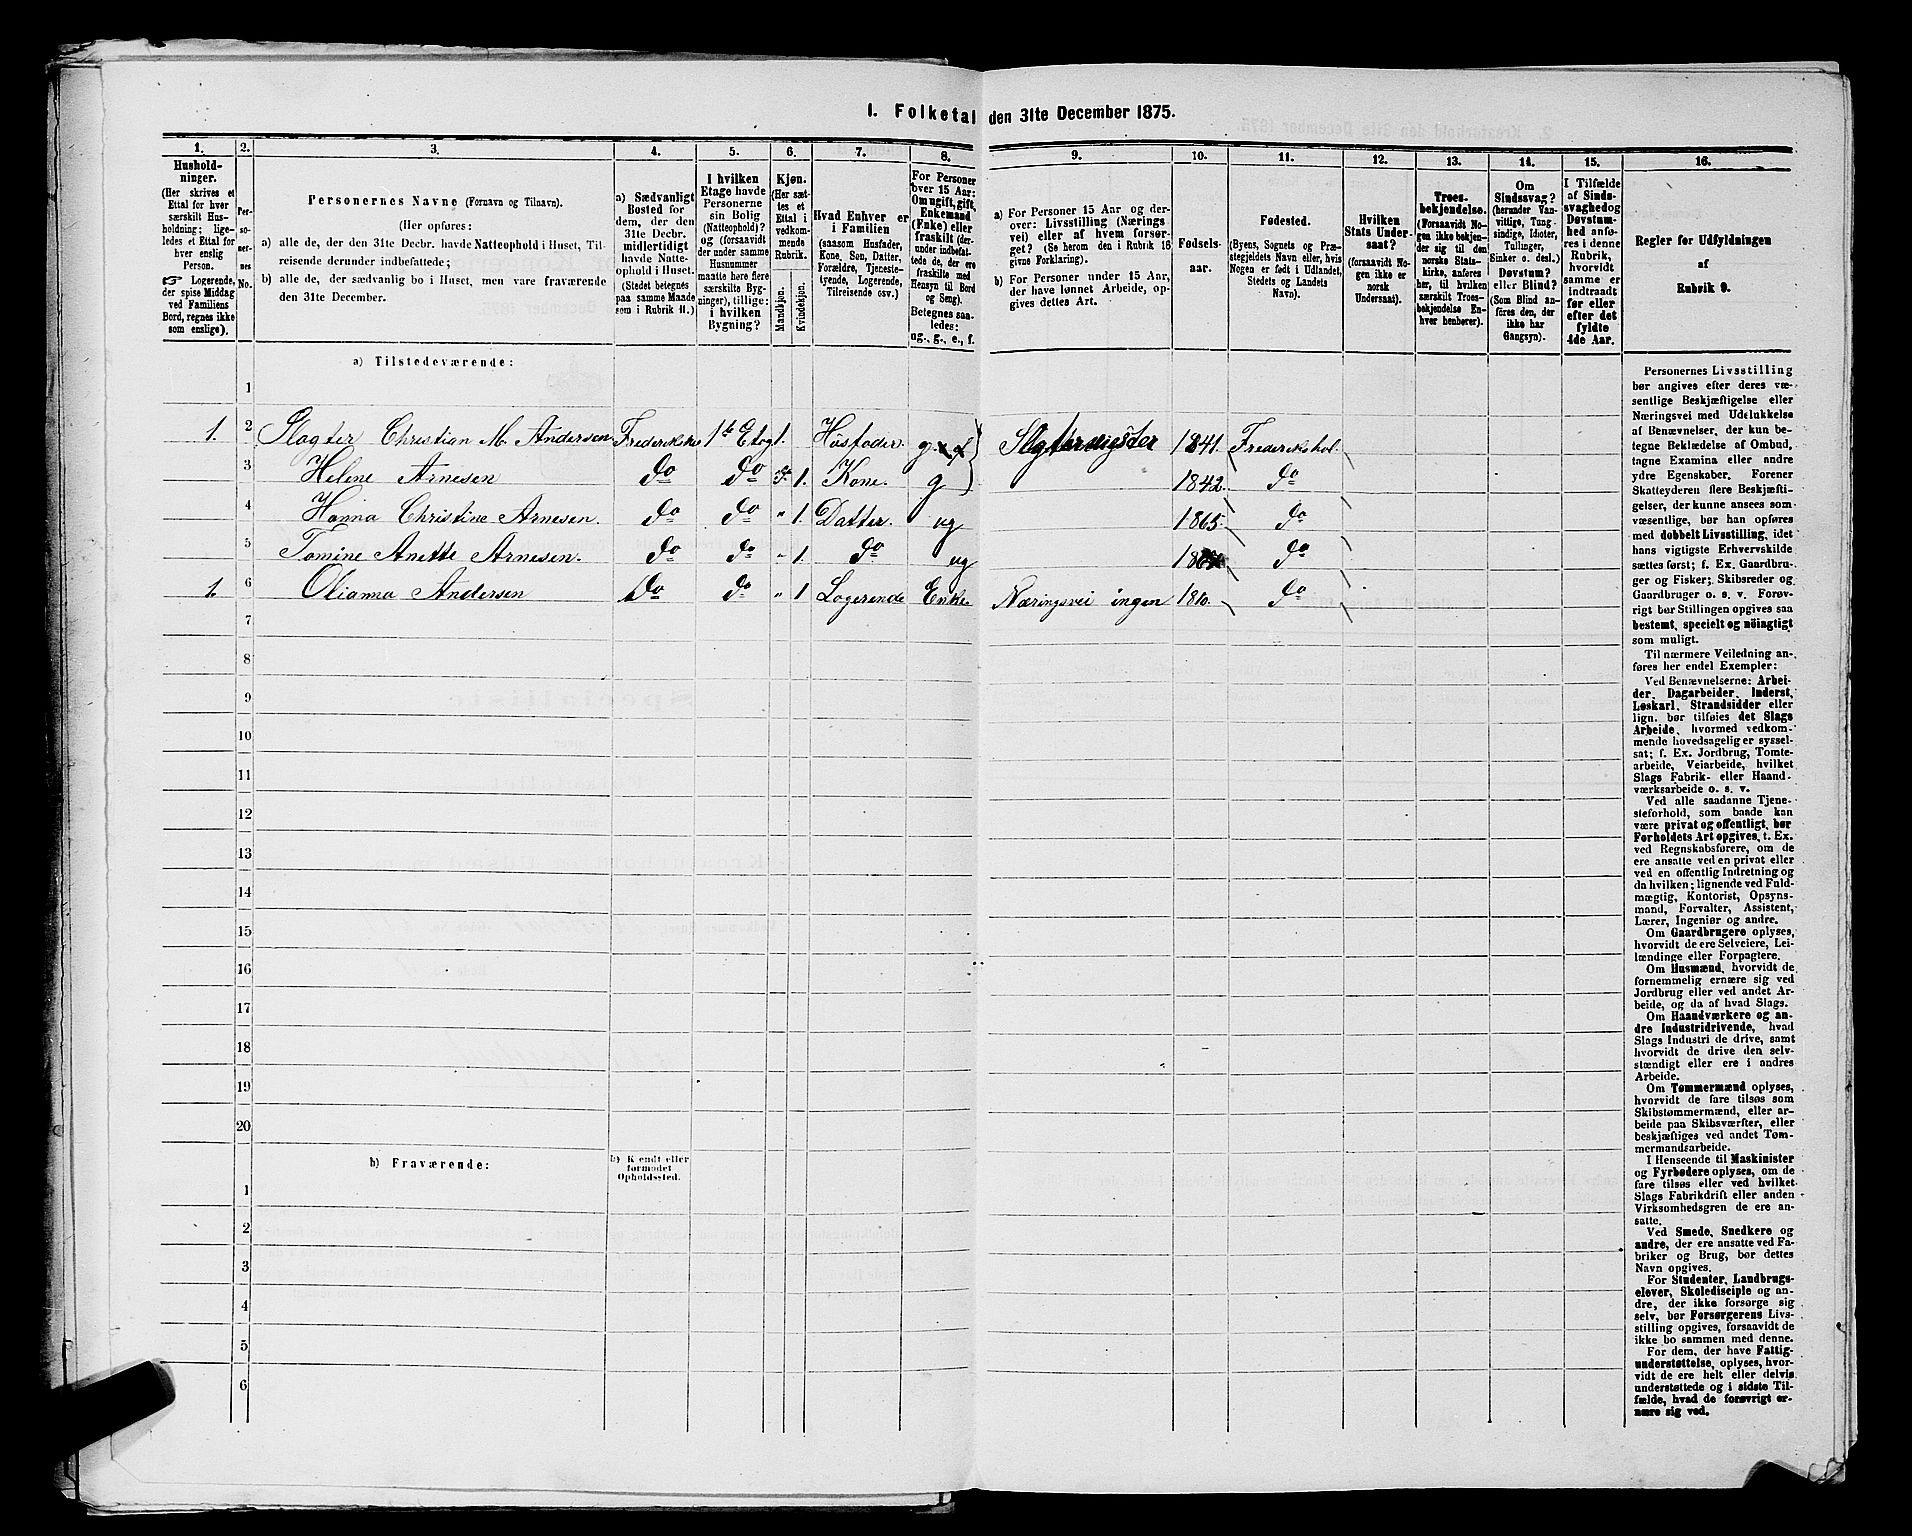 1. Folketal den 31te December 1875.
1. 2. 3. 4. 5. 6. 7. 8. 9. 10. 11. 12. 13. 14. 15. 16.
Hushold-
ninger.
(Her skrives et
Ettal for hver
særskilt Hus-
holdning; lige-
ledes et Ettal for
hver enslig
Person.
Logerende,
der spise Middag
ved Familiens
Bord, regnes ikke
som enslige).
Per-
so-
ner-
nes
No.
Personernes Navne (Fornavn og Tilnavn).
(Her opføres:
a) alle de, der den 31te Decbr. havde Natteophold i Huset, Til-
reisende derunder indbefattede;
b) alle de, der sædvanlig bo i Huset, men vare fraværende
den 31te December.
a) Sædvanligt
Bosted for
dem, der den
31te Decbr.
midlertidigt
havde Natte-
ophold i Huset.
(Stedet betegnes
paa samme Maade
som i Rubrik 11.)
I hvilken
Etage havde
Personerne
sin Bolig
(Natteophold)?
og (forsaavidt
der under samme
Husnummer
maatte høre flere
særskilte Byg-
ninger), tillige:
i hvilken
Bygning?
Kjøn.
(Her sæt-
tes et
Ettal i
vedkom-
mende
Rubrik.
Mandkjøn.
Kvindekjøn.
Hvad Enhver er
i Familien
(saasom Husfader,
Kone, Søn, Datter,
Forældre, Tjeneste-
tyende, Logerende,
Tilreisende osv.)
For Personer
over 15 Aar:
Om ugift, gift,
Enkemand
(Enke) eller
fraskilt (der-
under indbefat-
tede de, der ere
fraskilte med
Hensyn til Bord
og Seng).
Betegnes saa-
ledes:
ug., g., e., f.
a) For Personer 15 Aar og der-
over: Livsstilling (Nærings-
vei) eller af hvem forsør-
get? (Se herom den i Rubrik 16
givne Forklaring).
b) For Personer under 15 Aar,
der have lønnet Arbeide, op-
gives dettes Art.
Fødsels-
aar.
Fødested.
(Byens, Sognets og Præ-
stegjeldets Navn eller, hvis
Nogen er født i Udlandet,
Stedets og Landets
Navn).
Hvilken
Stats Under-
saat?
(forsaavidt No-
gen ikke er
norsk
Undersaat).
Troes-
bekjendelse.
(Forsaavidt No-
gen ikke bekjen-
der sig til den
norske Stats-
kirke, anføres
her, til hvilken
særskilt Troes-
bekjendelse En-
hver henhører).
Om
Sindssvag?
(herunder Van-
vittige, Tung-
sindige, Idioter,
Tullinger,
Sinker o. desl.)
Døvstum?
eller Blind?
(Som Blind an-
føres den, der
ikke har
Gangsyn).
I Tilfælde
af Sinds-
svaghed og
Døvstum-
hed anfø-
res i denne
Rubrik,
hvorvidt
samme er
indtraadt
før eller
efter det
fyldte
4de Aar.
Regler for Udfyldningen
af
Rubrik 9.
a) Tilstedeværende:
1
1. 2 Slagter Christian M. Andersen Frederikshal 1te Etag 1. Husfader. g. Slagtermester 1841. Frederikshal.
3 Helene Arnesen do do 1. Kone. g 1842. do
4 Hanna Christine Arnesen. do do " 1. Datter. ug 1865. do
5 Tomine Anette Arnesen. do do " 1. do ug do
1. 6 Olianna Andersen do do " 1 Logerende Enke. Næringsvei ingen 1810. do
7
8
9
10
11
12
13
14
15
16
17
18
19
20
b) Fraværende:
b) Kjendt eller
formodet
Opholdssted.
1
2
3
4
5
6
Personernes Livsstilling
bør angives efter deres væ-
sentlige Beskjæftigelse eller
Næringsvei med Udelukkelse
af Benævnelser, der kun be-
tegne Beklædelse af Ombud,
tagne Examina eller andre
ydre Egenskaber. Forener
Skatteyderen flere Beskjæfti-
gelser, der kunne ansees som
væsentlige, bør han opføres
med dobbelt Livsstilling, idet
hans vigtigste Erhvervskilde
sættes først; f. Ex. Gaardbru-
ger og Fisker; Skibsreder og
Gaardbruger o. s. v. Forøv-
rigt bør Stillingen opgives saa
bestemt, specielt og nöiagtigt
som muligt.
Til nærmere Veiledning an-
føres her endel Exempler:
Ved Benævnelserne: Arbei-
der, Dagarbeider, Inderst,
Løskarl, Strandsidder eller
lign. bør tilføies det Slags
Arbeide, hvormed vedkom-
mende hovedsagelig er syssel-
sat; f. Ex. Jordbrug, Tomte-
arbeide, Veiarbeide, hvilket
Slags Fabrik- eller Haand-
værksarbeide o. s. v.
Ved alle saadanne Tjene-
steforhold, som baade kan
være privat og offentligt, bør
Forholdets Art opgives, t. Ex.
ved Regnskabsførere, om de
ere ansatte ved en privat eller
ved en offentlig Indretning og
da hvilken; lignende ved Fuld-
mægtig, Kontorist, Opsyns-
mand, Forvalter, Assistent,
Lærer, Ingeniør og andre.
Om Gaardbrugere oplyses,
hvorvidt de ere Selveiere, Lei-
lændinge eller Forpagtere.
Om Husmænd, hvorvidt de
fornemmelig ernære sig ved
Jordbrug eller ved andet Ar-
beide, og da af hvad Slags.
Om Haandværkere og an-
dre Industridrivende, hvad
Slags Industri de drive, samt
hvorvidt de drive den selv-
stændigt eller ere i andres
Arbeide.
Om Tømmermænd oplyses,
hvorvidt de fare tilsøs som
Skibstømmermænd, eller ar-
beide paa Skibsværfter, eller
beskjæftiges ved andet Tøm-
mermandsarbeide.
I Henseende til Maskinister
og Fyrbødere oplyses, om de
fare tilsøs eller ved hvilket
Slags Fabrikdrift eller anden
Virksomhedsgren de ere an-
satte.
Ved Smede, Snedkere og
andre, der ere ansatte ved Fa-
briker og Brug, bør dettes
Navn opgives.
For Studenter, Landbrugs-
elever, Skoledisciple og an-
dre, der ikke forsørge sig
selv, bør Forsørgerens Livs-
stilling opgives, forsaavidt de
ikke bo sammen med denne.
For dem, der have Fattig-
understøttelse, oplyses, hvor-
vidt de ere helt eller delvis
understøttede og i sidste Til-
fælde, hvad de forøvrigt er-
nære sig ved.